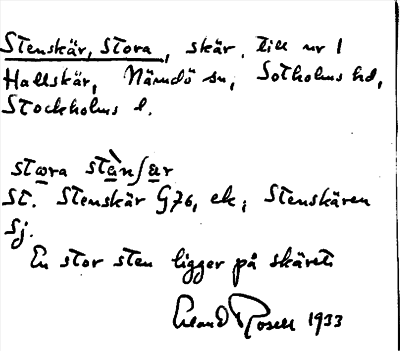 Stenskär, Stora, skär. Till nr 1
Hallskär, Nämdö sn, Sotholms hd,
Stockholms l.
stωra stànſar
St. Stenskär G76, ek; Stenskären
Sj.
En stor sten ligger på skäret.
Erland Rosell 1933